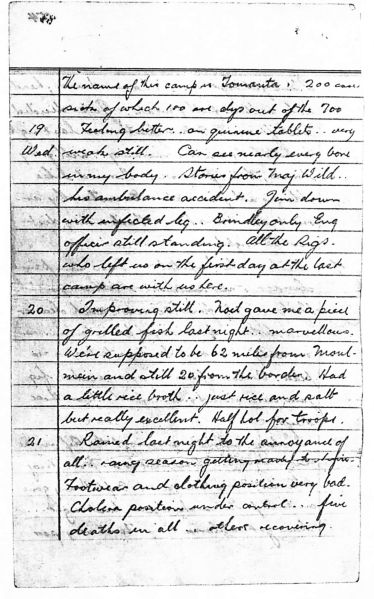 The name of this camp is Tomanta. 200 are
sick of which 100 are dys out of the 700
19 Feeling better.. on quinine tablets.. very
Wed weak still. Can see nearly every bone
in my body. Stories from Maj Wild..
his ambulance accident. Jim down
with infected leg.. Brindley only Eng
officer still standing. All the Sigs.
who left us on the first day at the last
camp are with us here.
20 Improving still. Noel gave me a piece
of grilled fish last night.. marvellous.
We're supposed to be 62 miles from Moul-
mein and still 20 from the border. Had
a little rice broth.. just rice and salt
but really excellent. Half hol for troops.
21 Rained last night to the annoyance of
all.. rainy season getting ready to
Footwear and clothing position very bad.
Cholera position under control... five
deaths in all.. others recovering.